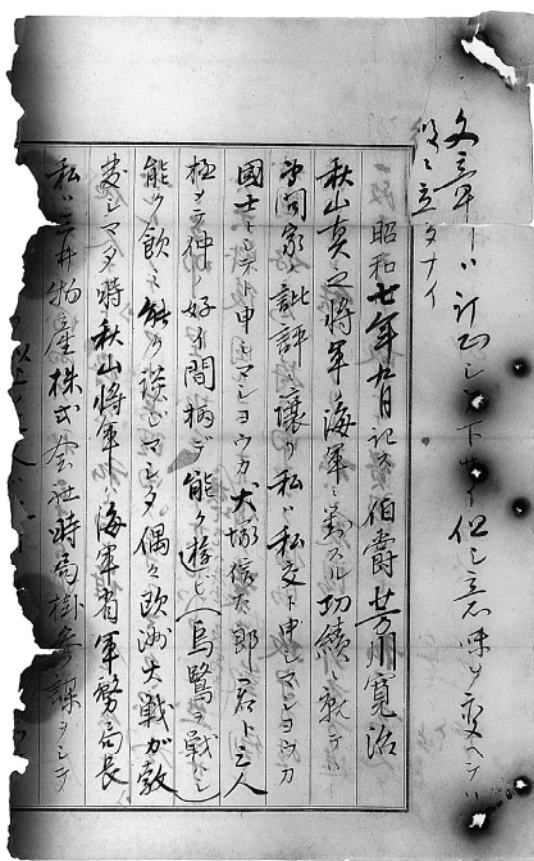 文章ハ訂正シテ下サイ但シ意味ヲ変ヘテハ
役ニ立タナイ
昭和七年五月記ス 伯爵 芳川寛治
秋山真之将軍ノ海軍ニ対スル功績ニ就テハ
専門家ノ批評ニ譲リ私ハ私交ト申シマシヨウカ
國士トシテト申シマシヨウカ犬塚信太郎君ト云人
極メテ仲ノ好イ間柄デ能ク遊ビ(烏鷺ヲ戦ハシ)
能ク飲ミ能ク談ジマシタ偶々欧洲大戦ガ敦
シマシタ時ハ秋山将軍ハ海軍省軍務局長
私ハ三井物産株式会社時局掛参謀トシテ
以上